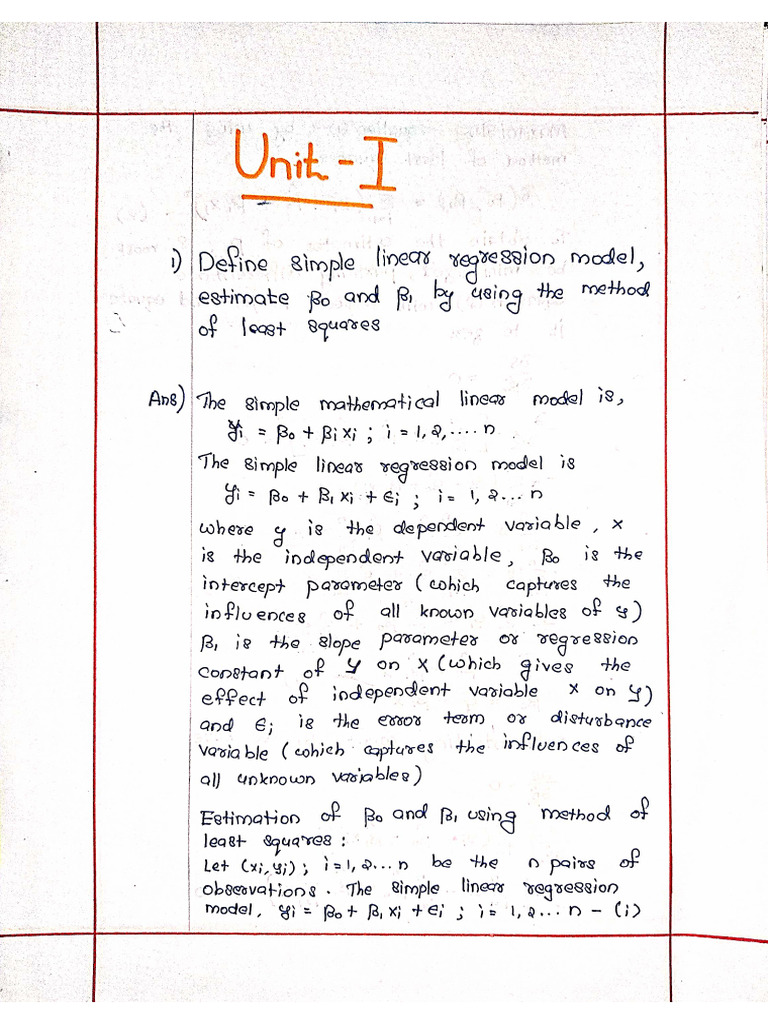 Unit - I
1) Define simple linear regression model,
estimate β₀ and β₁ by using the method
of least squares
Ans) The simple mathematical linear model is,
yᵢ = β₀ + βᵢxᵢ ; i = 1, 2, .... n
The simple linear regression model is
yᵢ = β₀ + β₁xᵢ + ϵᵢ ; i = 1, 2... n
where y is the dependent variable, x
is the independent variable, β₀ is the
intercept parameter (which captures the
influences of all known variables of y)
β₁ is the slope parameter or regression
constant of y on x (which gives the
effect of independent variable x on y)
and ϵᵢ is the error term or disturbance
variable (which captures the influences of
all unknown variables)
Estimation of β₀ and β₁ using method of
least squares :
Let (xᵢ, yᵢ) ; i = 1, 2... n be the n pairs of
observations. The simple linear regression
model, yᵢ = β₀ + β₁xᵢ + ϵᵢ ; i = 1, 2... n - (i)